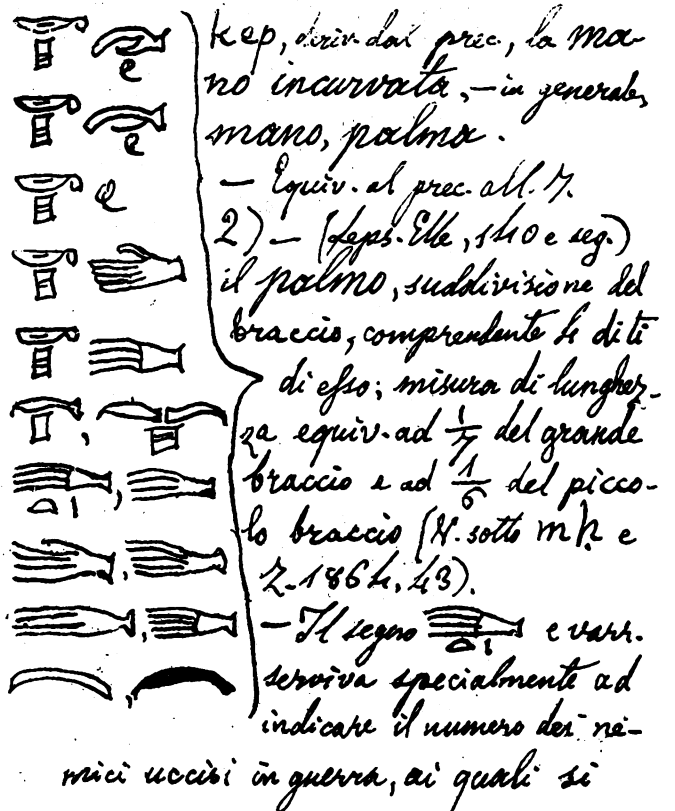 kep, deriv. dal prec., la ma-
no incurvata, — in generale,
mano, palma.
— Equiv. al prec. all. 7.
2) — (Leps. Elle, s 40 e seg.)
il palmo, suddivisione del
braccio, comprendente 4 diti
di esso; misura di lunghez-
za equiv. ad 1/7 del grande
braccio e ad 1/6 del picco-
lo braccio (V. sotto mḥ e
Z. 1864, 43).
— Il segno e varr.
serviva specialmente ad
indicare il numero dei ne-
mici uccisi in guerra, ai quali si